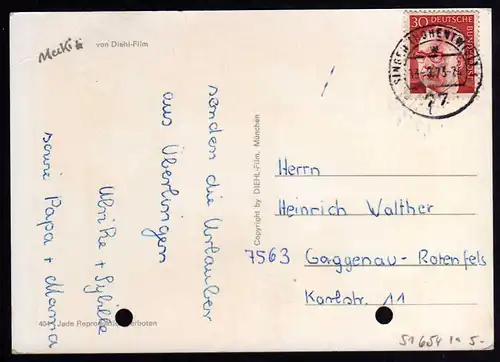 Mecki
von Diehl-Film
30 DEUTSCHE BUNDESPOST
SINGEN (HOHENTWIEL)
77
senden die Urlauber
aus Überlingen
Ulrike + Sybille
sowie Papa + Mama
Copyright by DIEHL-Film, München
Herrn
Heinrich Walther
7563 Gaggenau-Rotenfels
Karlstr. 11
Jede Reproduktion verboten
51654 1a 5-